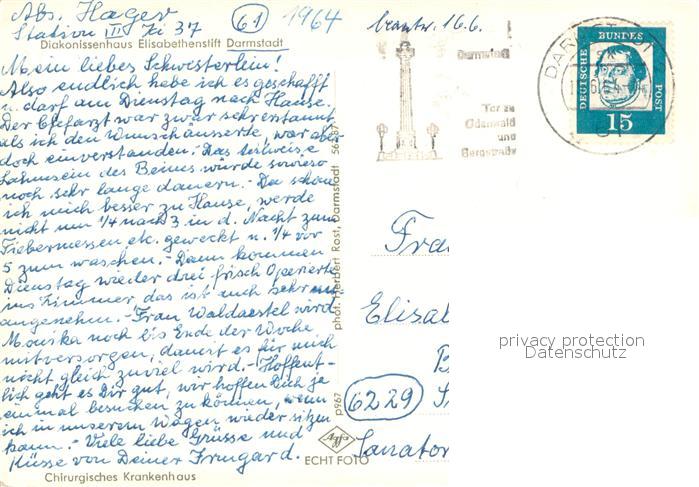 Abs. Hager
Station III Zi 37
61
1964
Diakonissenhaus Elisabethenstift Darmstadt
Mein liebes Schwesterlein!
Also endlich habe ich es geschafft
u. darf am Dienstag nach Hause.
Der Chefarzt war zwar sehr erstaunt
als ich den Wunsch äusserte, war aber
doch einverstanden. Das teilweise
Lahmsein des Beines würde sowieso
noch sehr lange dauern. - Da schone
ich mich besser zu Hause, werde
nicht um 1/4 nach 3 in d. Nacht zum
Fiebermessen etc. geweckt u. 1/4 vor
5 zum waschen. - Dann kommen
Dienstag wieder drei frisch Operierte
ins Zimmer, das ist auch sehr un-
angenehm. - Frau Waldaestel wird
Monika noch bis Ende der Woche
mitversorgen, damit es für mich
nicht gleich zuviel wird. - Hoffent-
lich geht es Dir gut, wir hoffen Dich ja
einmal besuchen zu können, wenn
ich in unserem Wagen wieder sitzen
kann. - Viele liebe Grüsse und
Küsse von Deiner Irmgard.
Chirurgisches Krankenhaus
phot. Herbert Rost, Darmstadt
p967
Agfa
ECHT FOTO
beantw. 16.6.
Darmstadt
Tor zu
Odenwald
und
Bergstraße
DARMSTADT
DEUTSCHE BUNDESPOST
15
Frau
Elisab
6229
Sanator
privacy protection
Datenschutz